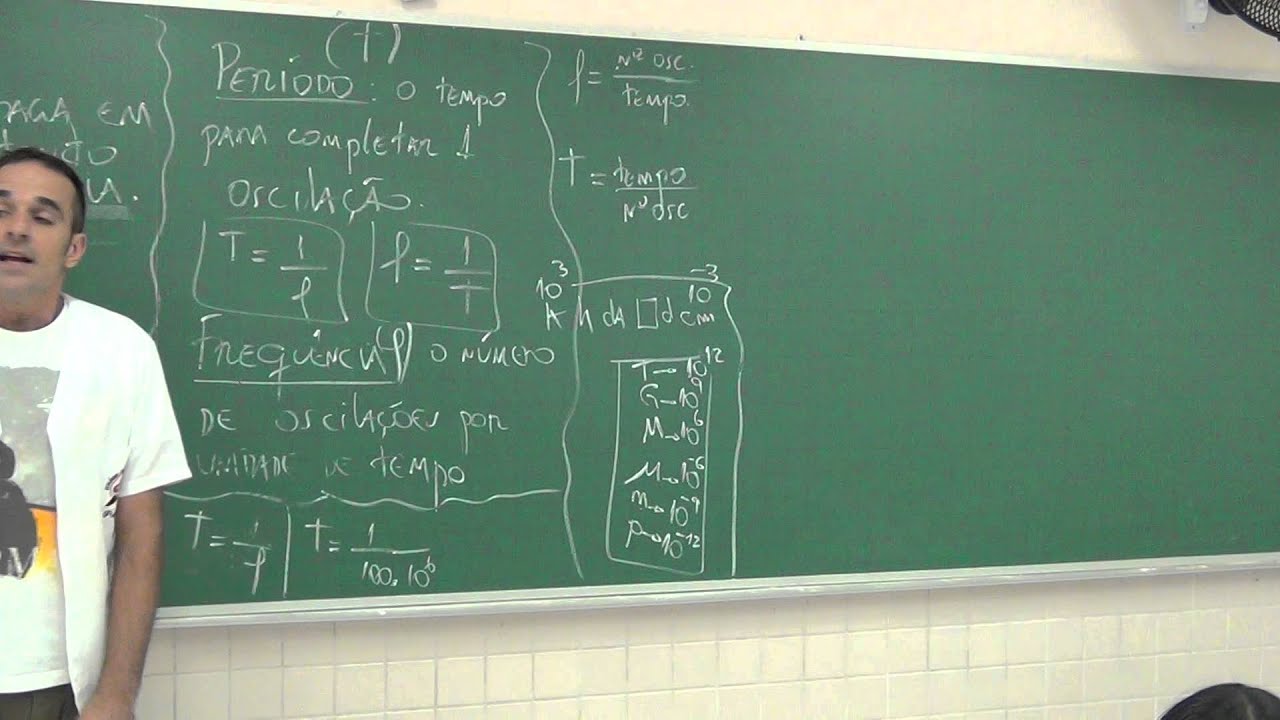 PAGA EM
.
(T)
PERÍODO: O TEMPO
PARA COMPLETAR 1
OSCILAÇÃO.
T = 1/f
f = 1/T
FREQUÊNCIA(f) O NÚMERO
DE OSCILAÇÕES POR
UNIDADE DE TEMPO
T = 1/f
T = 1/100.10⁶
f = Nº OSC./TEMPO.
T = TEMPO/Nº OSC
10³ 10⁻³
K h da □ d c m
T→10¹²
G→10⁹
M→10⁶
μ→10⁻⁶
n→10⁻⁹
p→10⁻¹²